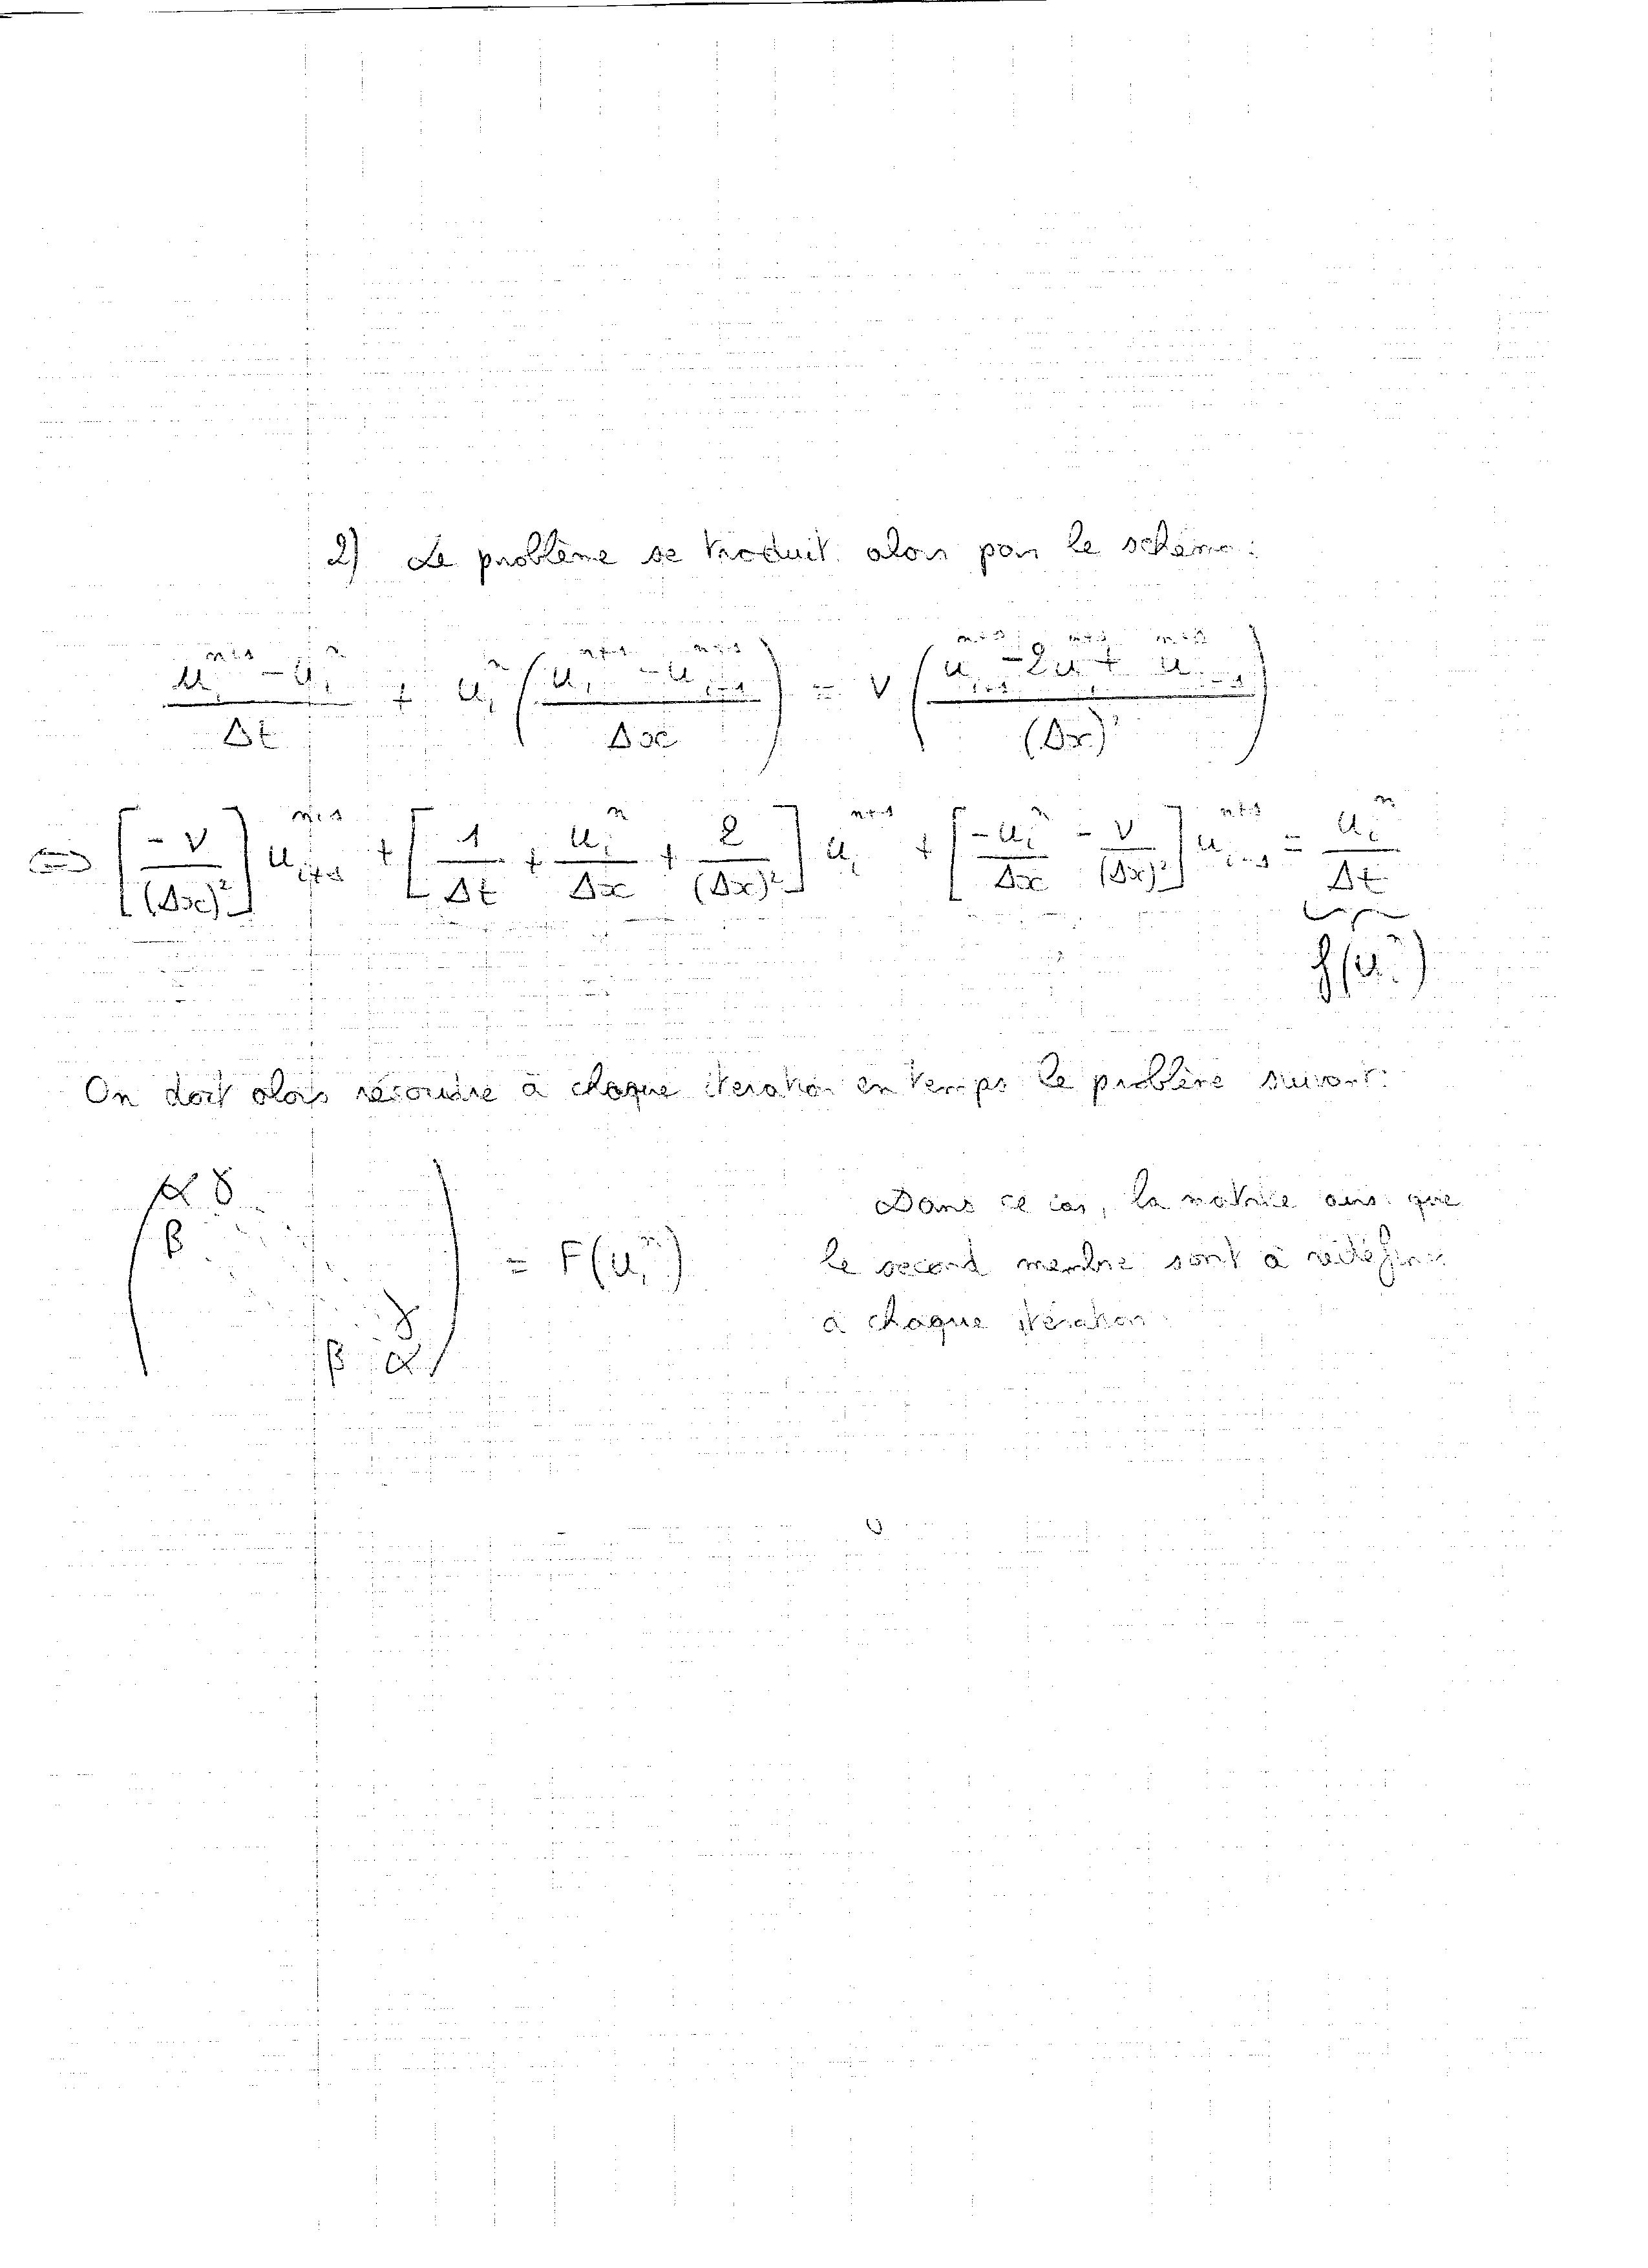 2) Le problème se traduit alors par le schéma :
(u_i^{n+1} - u_i^n) / Δt + u_i^n ( (u_i^{n+1} - u_{i-1}^{n+1}) / Δx ) = ν ( (u_{i+1}^{n+1} - 2u_i^{n+1} + u_{i-1}^{n+1}) / (Δx)² )
⇔ [ -ν / (Δx)² ] u_{i+1}^{n+1} + [ 1/Δt + u_i^n/Δx + 2/(Δx)² ] u_i^{n+1} + [ -u_i^n/Δx - ν/(Δx)² ] u_{i-1}^{n+1} = u_i^n/Δt
f(u_i^n)
On doit alors résoudre à chaque itération en temps le problème suivant :
α γ
β
γ
β α
= F(u_i^n)
Dans ce cas, la matrice ainsi que
le second membre sont à redéfinir
à chaque itération